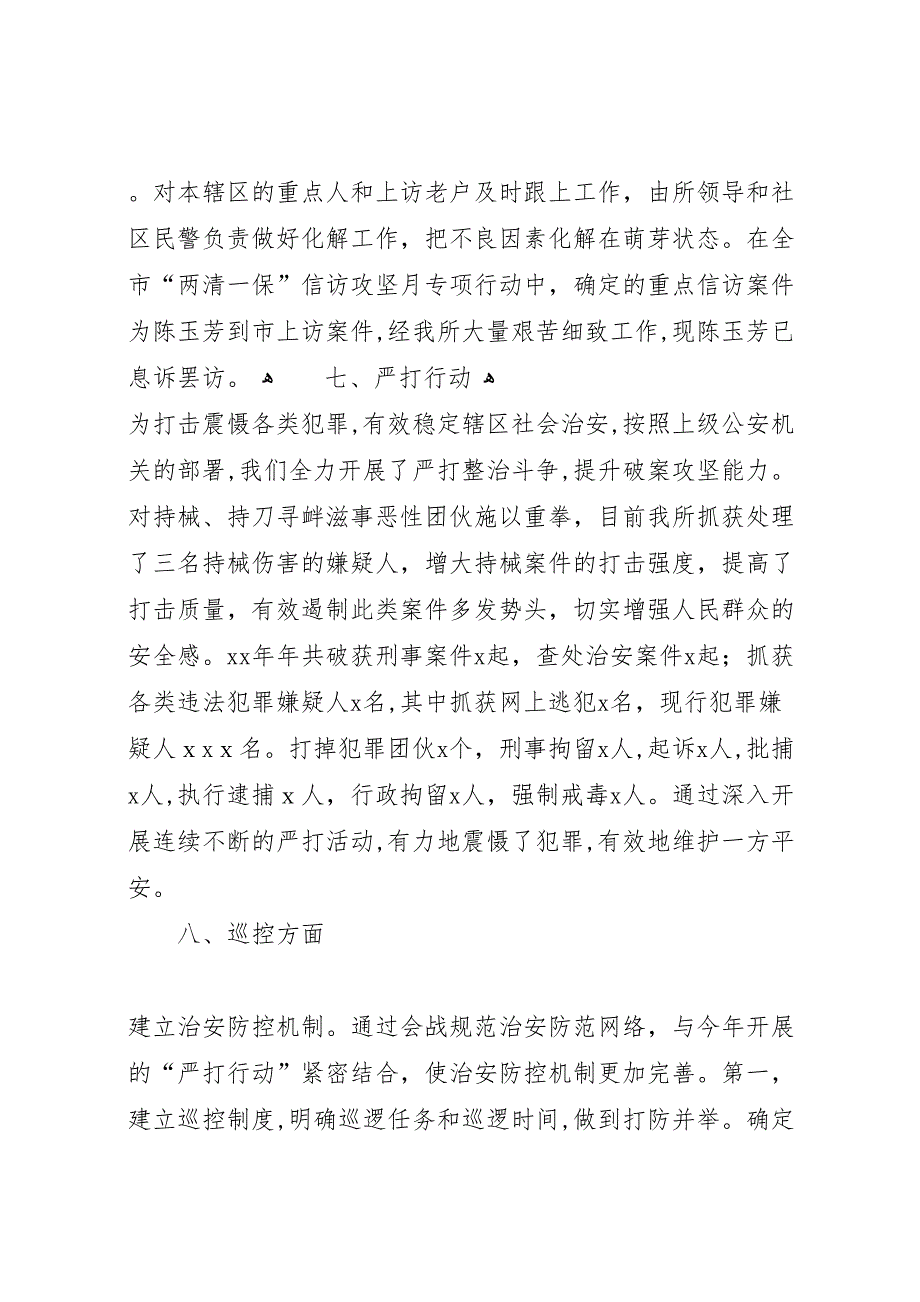 。对本辖区的重点人和上访老户及时跟上工作，由所领导和社
区民警负责做好化解工作，把不良因素化解在萌芽状态。在全
市“两清一保”信访攻坚月专项行动中，确定的重点信访案件
为陈玉芳到市上访案件,经我所大量艰苦细致工作,现陈玉芳已
息诉罢访。 ﻫ 七、严打行动 ﻫ
为打击震慑各类犯罪,有效稳定辖区社会治安,按照上级公安机
关的部署,我们全力开展了严打整治斗争,提升破案攻坚能力。
对持械、持刀寻衅滋事恶性团伙施以重拳，目前我所抓获处理
了三名持械伤害的嫌疑人，增大持械案件的打击强度，提高了
打击质量，有效遏制此类案件多发势头，切实增强人民群众的
安全感。xx年年共破获刑事案件x起，查处治安案件x起；抓获
各类违法犯罪嫌疑人x名,其中抓获网上逃犯x名，现行犯罪嫌
疑人ｘｘｘ名。打掉犯罪团伙x个，刑事拘留x人,起诉x人,批捕
x人,执行逮捕ｘ人，行政拘留x人，强制戒毒x人。通过深入开
展连续不断的严打活动,有力地震慑了犯罪,有效地维护一方平
安。
八、巡控方面
建立治安防控机制。通过会战规范治安防范网络，与今年开展
的“严打行动”紧密结合，使治安防控机制更加完善。第一，
建立巡控制度,明确巡逻任务和巡逻时间,做到打防并举。确定